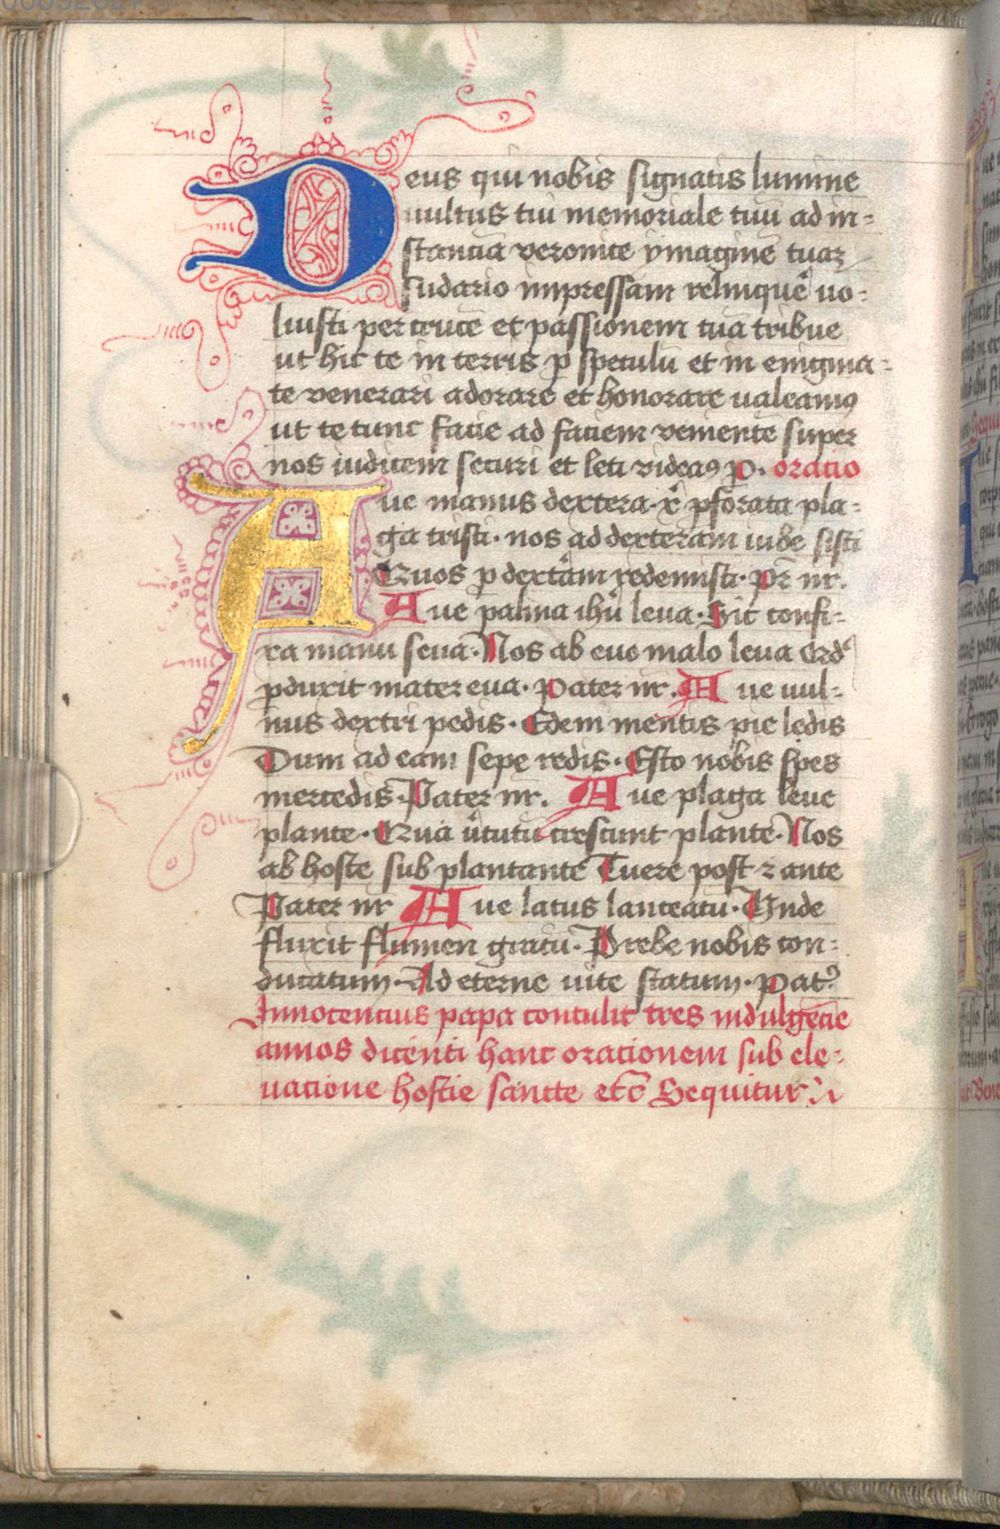 Deus qui nobis signatis lumine
uultus tui memoriale tuu ad in-
stancia veronice ymagine tuaz
sudario impressam relinque uo-
luisti per cruce et passionem tua tribue
ut hic te in terris p speculu et in enigma-
te venerari adorare et honorare ualeamus
ut te tunc facie ad faciem veniente super
nos iudicem securi et leti videas p. oratio
Aue manus dextera xp pforata pla-
ga tristi. nos ad dexteram iube sisti
Quos p dextam redemisti. Pr nr.
Aue palma ihu leua. Sic confi-
xa manu seua. Nos ab euo malo leua Qd
pduxit mater eua. Pater nr. Aue uul-
nus dextri pedis. Edem mentis pie ledis
Dum ad eam sepe redis. Esto nobis spes
mercedis. Pater nr. Aue plaga leue
plante. Qua ututu crescunt plante. Nos
ab hoste sub plantante Tuere post z ante
Pater nr Aue latus lanceatu. Unde
fluxit flumen gratu. Prebe nobis con-
ducatum. Ad eterne uite statum. Pat
Innocencius papa contulit tres indulgecie
annos dicenti hanc orationem sub ele-
uatione hostie sancte etc Sequitur